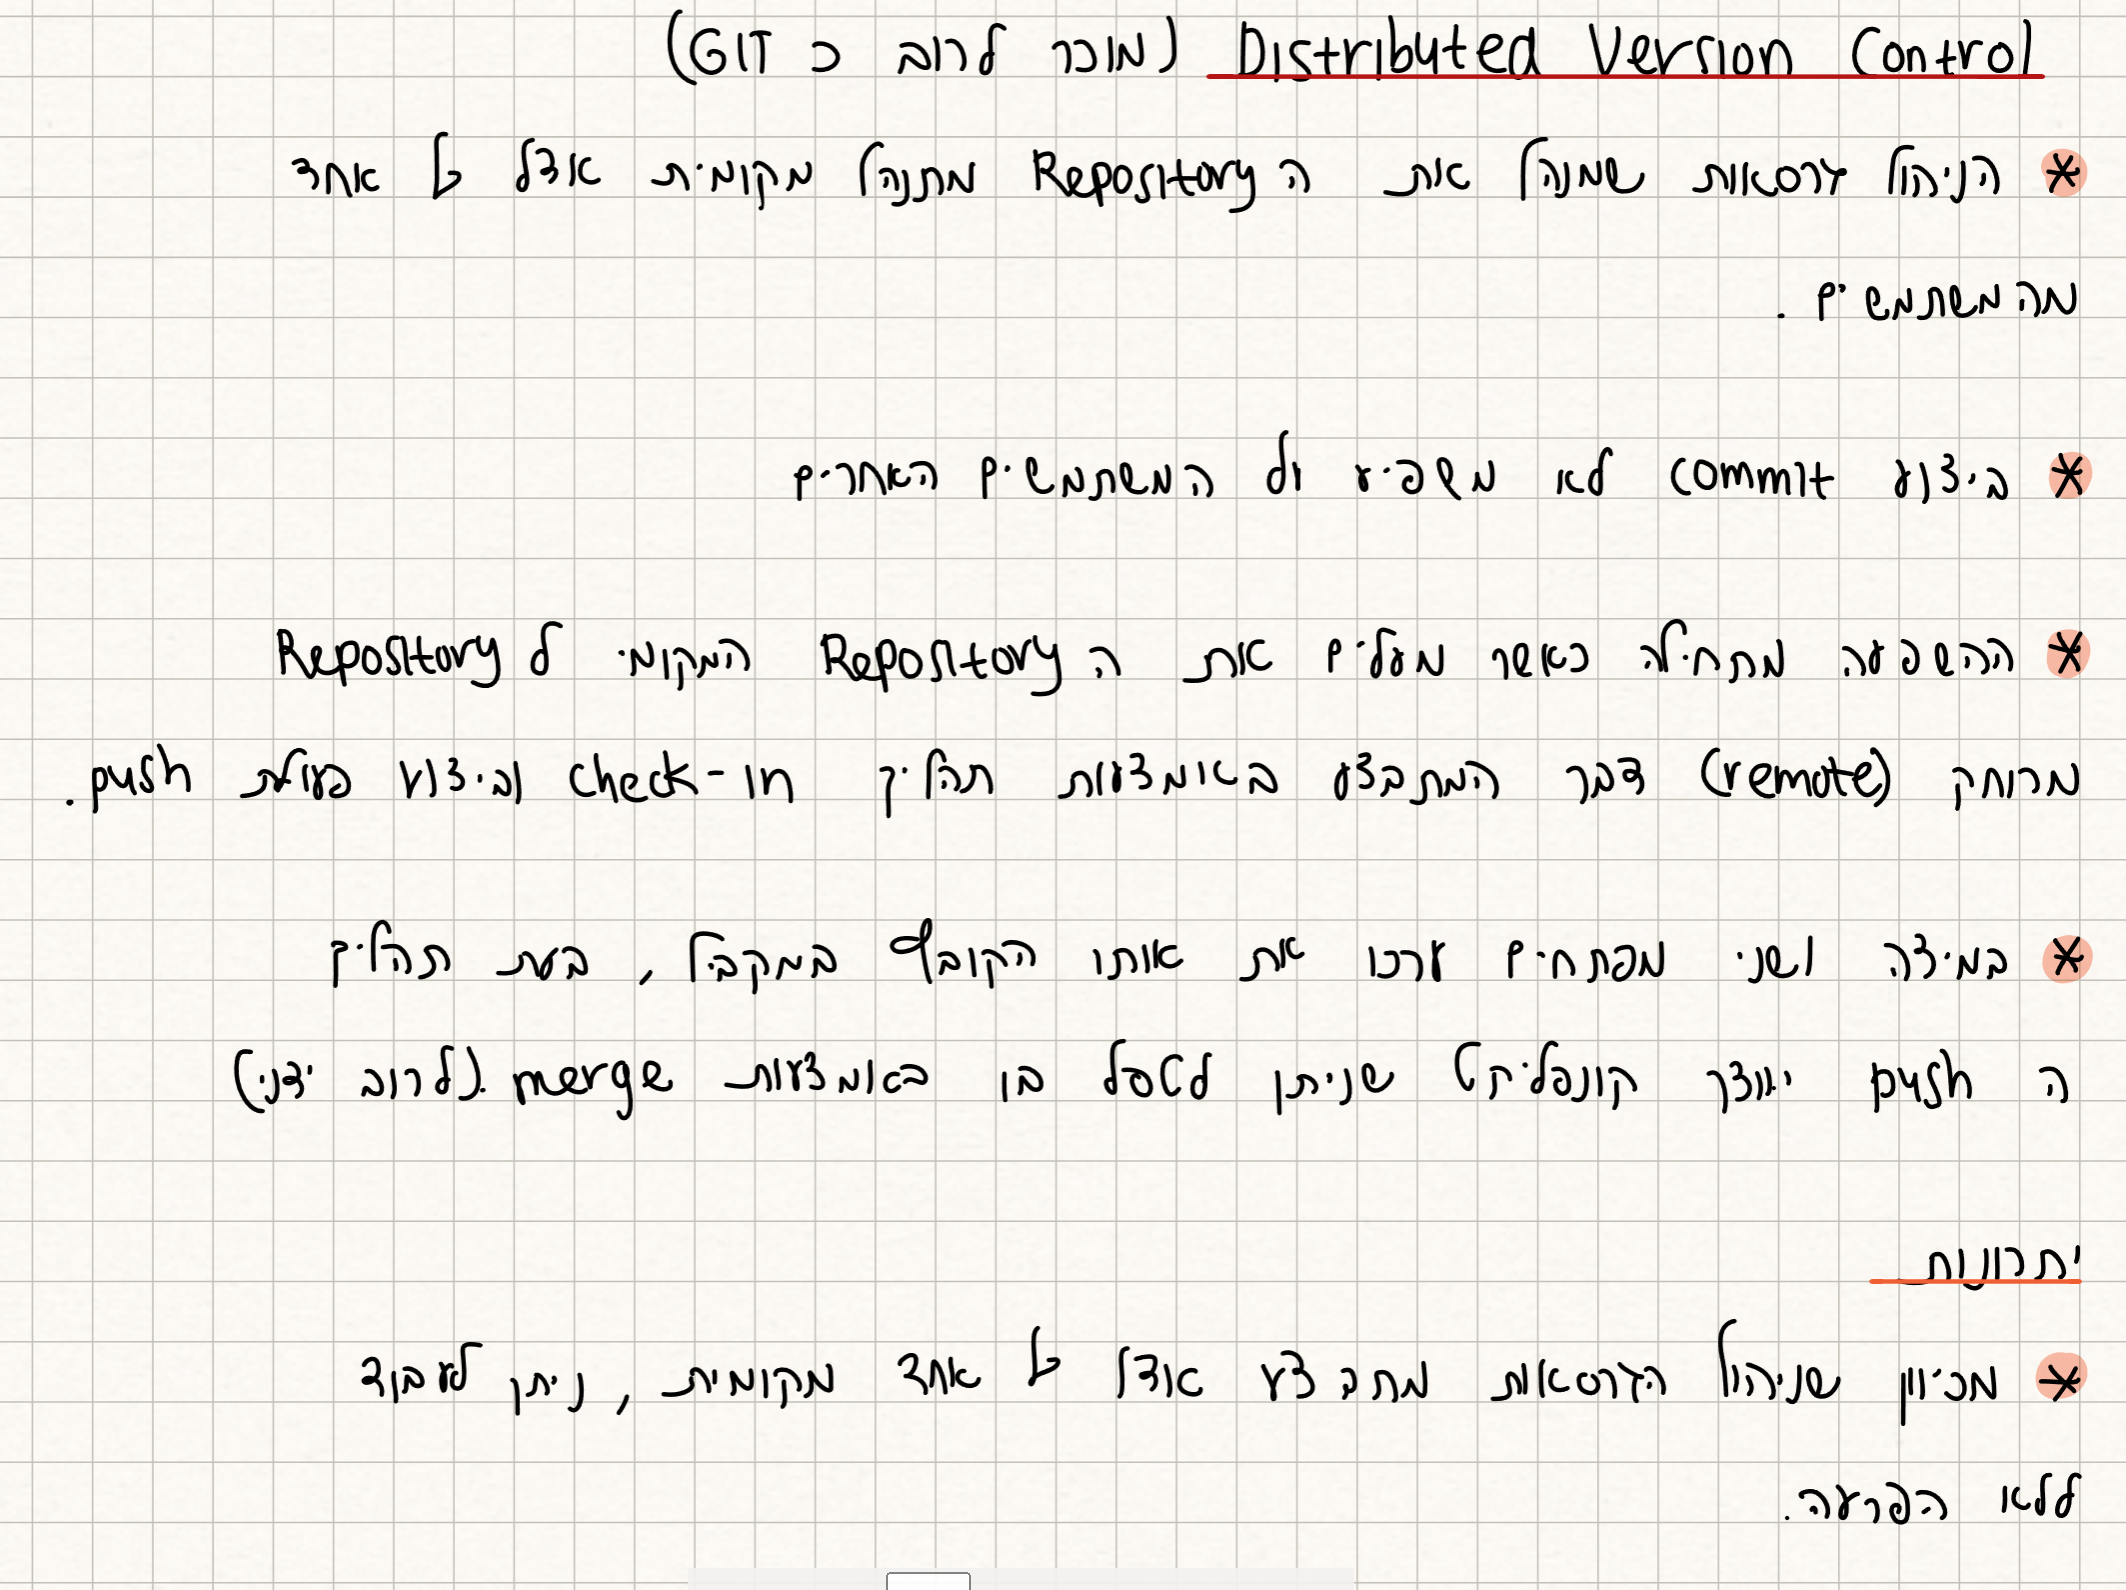 Distributed Version Control (מוכר לרוב כ GIT)
* הניהול גרסאות שמנהל את ה Repository מתנהל מקומית אצל כל אחד
מהמשתמשים .
* ביצוע commit לא משפיע על המשתמשים האחרים
* ההשפעה מתחילה כאשר מעלים את ה Repository המקומי ל Repository
מרוחק (remote) דבר המתבצע באומצעות תהליך check-in וביצוע פעולת push.
* במידה ושני מפתחים ערכו את אותו הקובץ במקביל , בעת תהליך
ה push יווצר קונפליקט שניתן לטפל בו באומצעות merge.(לרוב ידני)
יתרונות
* מכיוון שניהול הגרסאות מתבצע אצל כל אחד מקומית , ניתן לעבוד
ללא הפרעה.